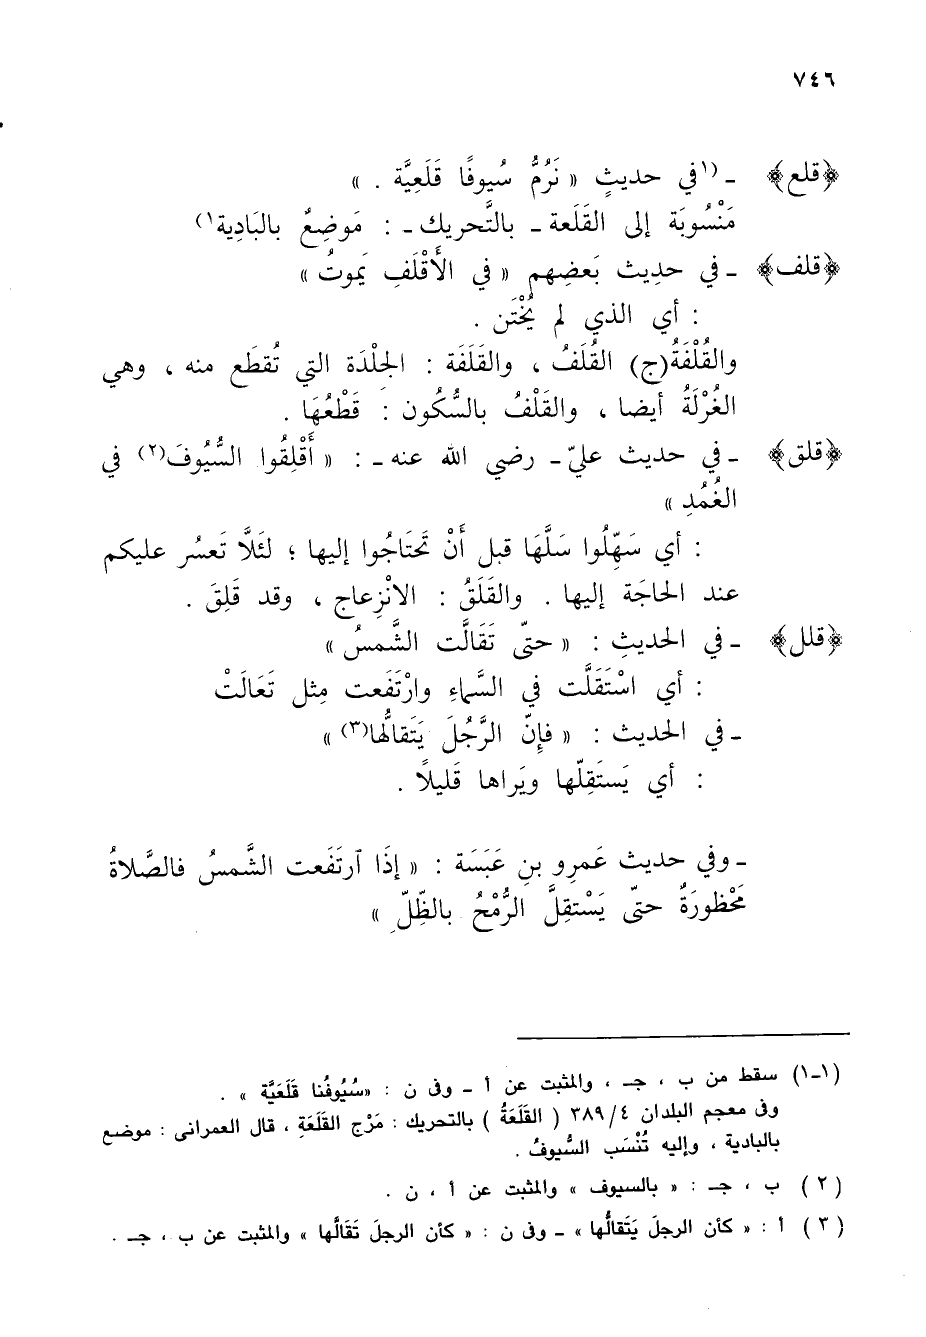 ٧٤٦
﴿قلع﴾ ـ (١في حديثٍ « نَرُمُّ سُيوفًا قَلَعِيَّة . »
مَنْسُوبَة إلى القَلَعة ـ بالتَّحريك ـ : مَوضِعٌ بالبَادِية١)
﴿قلف﴾ ـ في حدِيث بَعضِهم « في الأَقْلَفِ يَموتُ »
: أي الذي لم يُخْتَن .
والقُلْفَةُ(ج) القُلَفُ ، والقَلَفَة : الجِلْدَة التي تُقطَع منه ، وهي
الغُرْلَةُ أيضا ، والقَلْفُ بالسُّكون : قَطْعُهَا .
﴿قلق﴾ ـ في حديث عليّ ـ رضي الله عنه ـ : « أَقْلِقُوا السُّيُوفَ(٢) في
الغُمُدِ »
: أي سَهِّلُوا سَلَّهَا قبل أَنْ تَحتَاجُوا إليها ؛ لئَلَّا تَعسُر عليكم
عند الحاجَة إليها . والقَلَقُ : الانْزِعاج ، وقد قَلِقَ .
﴿قلل﴾ ـ في الحديثِ : « حتّى تَقَالَّت الشَّمسُ »
: أي اسْتَقَلَّت في السَّماءِ وارْتَفَعت مِثل تَعَالَتْ
ـ في الحديث : « فإنّ الرَّجُلَ يَتَقالُّها(٣) »
: أي يَستَقِلّها ويَراها قَليلاً .
ـ وفي حديث عَمرِو بنِ عَبَسَة : « إذَا ارتَفَعت الشَّمسُ فالصَّلاةُ
مَحْظورَةٌ حتّى يَسْتقِلَّ الرُّمْحُ بالظِّلِّ »
(١-١) سقط من ب ، جـ ، والمثبت عن أ ـ وفى ن : «سُيُوفُنا قَلَعَيَّة » .
وفى معجم البلدان ٣٨٩/٤ ( القَلَعَةُ ) بالتحريك : مَرْج القَلَعَةِ ، قال العمرانى : موضع
بالبادية ، وإليه تُنْسَب السُّيوفُ .
(٢) ب ، جـ : « بالسيوف » والمثبت عن أ ، ن .
(٣) أ : « كأن الرجلَ يَتَقالُّها» ـ وفى ن : « كأن الرجلَ تَقَالَّها » والمثبت عن ب ، جـ .